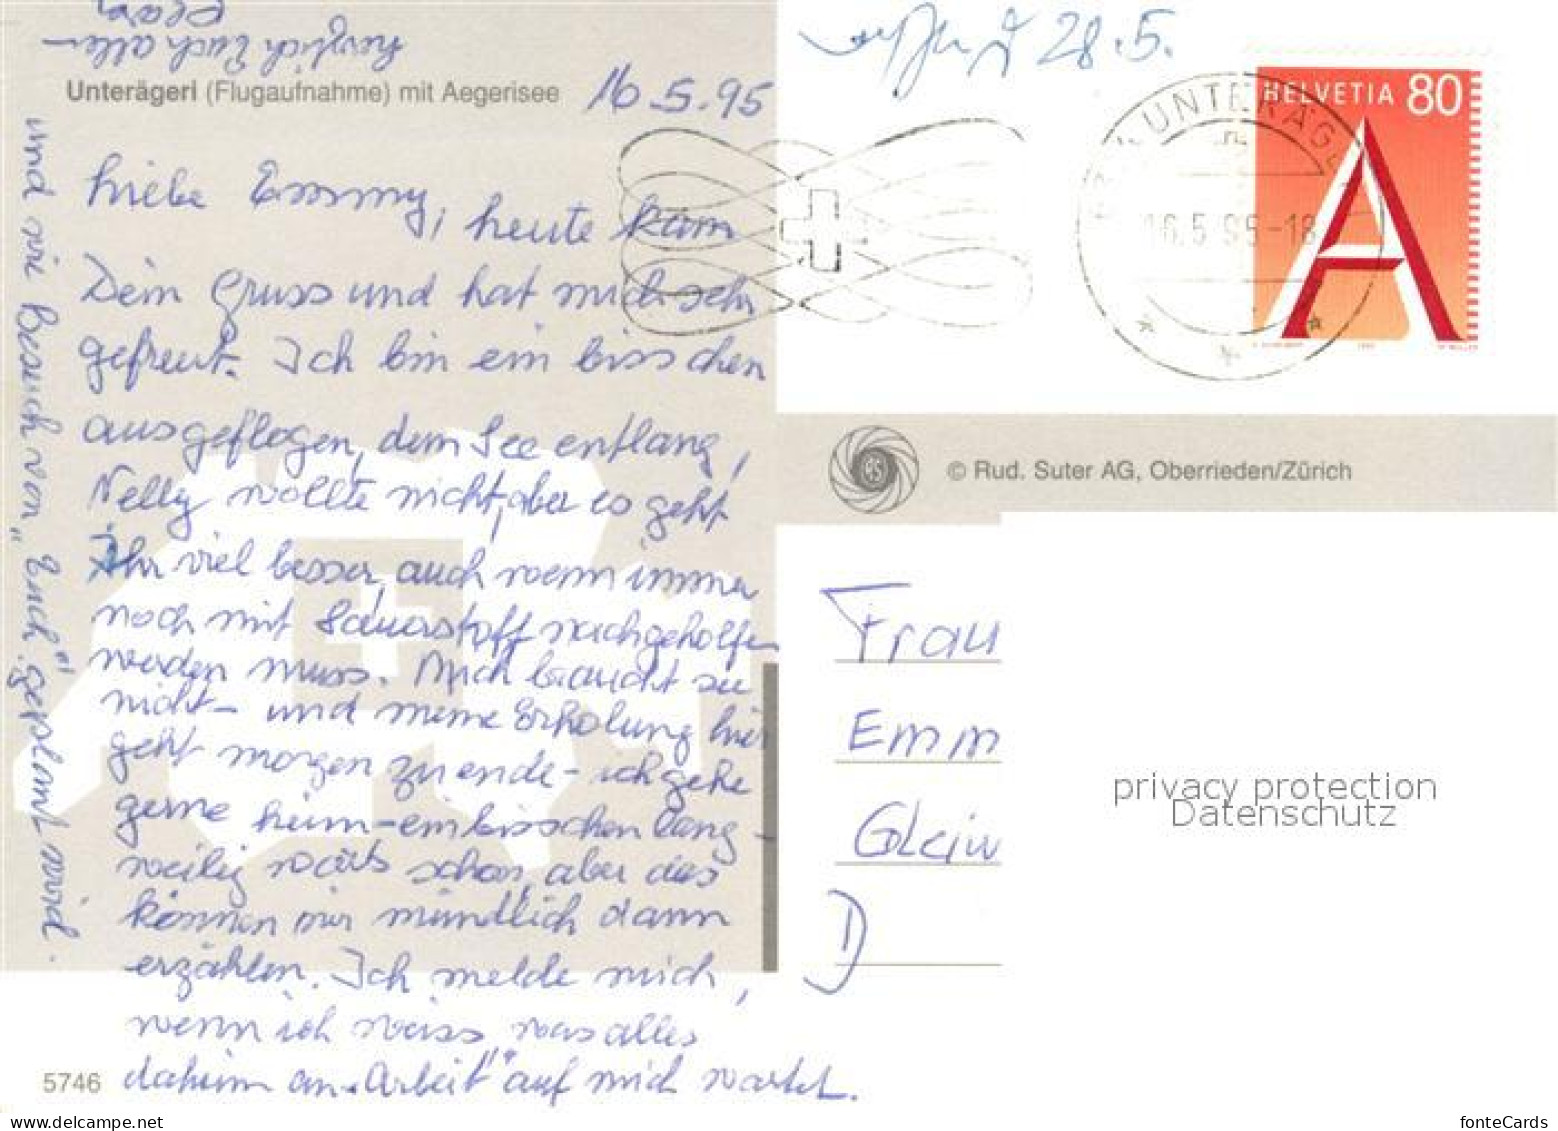 Unterägeri (Flugaufnahme) mit Aegerisee
16.5.95
Liebe Emmy, heute kam
Dein Gruss und hat mich sehr
gefreut. Ich bin ein bisschen
ausgeflogen, dem See entlang,
Nelly wollte nicht, aber es geht
Ihr viel besser, auch wenn immer
noch mit Sauerstoff nachgeholfen
werden muss. Mich braucht sie
nicht – und meine Erholung hier
geht morgen zu ende – ich gehe
gerne heim – ein bisschen lang-
weilig wärs schon, aber das
können wir mündlich dann
erzählen. Ich melde mich,
wenn ich weiss, was alles
daheim an „Arbeit" auf mich wartet.
und wie Besuch von „Euch" geplant wird.
Herzlich Euch allen
5746
28.5.
HELVETIA 80
A
UNTERÄGERI
16.5.95-18
© Rud. Suter AG, Oberrieden/Zürich
Frau
Emm
Gleiw
D
privacy protection
Datenschutz
www.delcampe.net
fonteCards